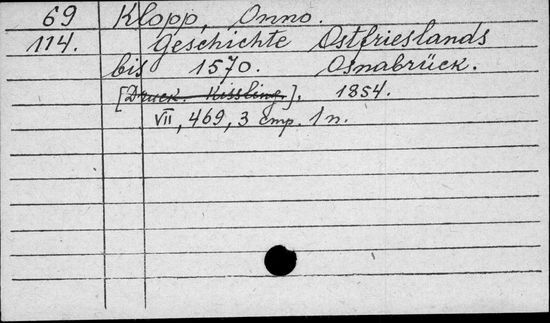 69 Klopp, Onno.
114. Geschichte Ostfrieslands
bis 1570. Osnabrück.
[Druck. Kissling], 1854.
VII, 469, 3 стр. 1 п.